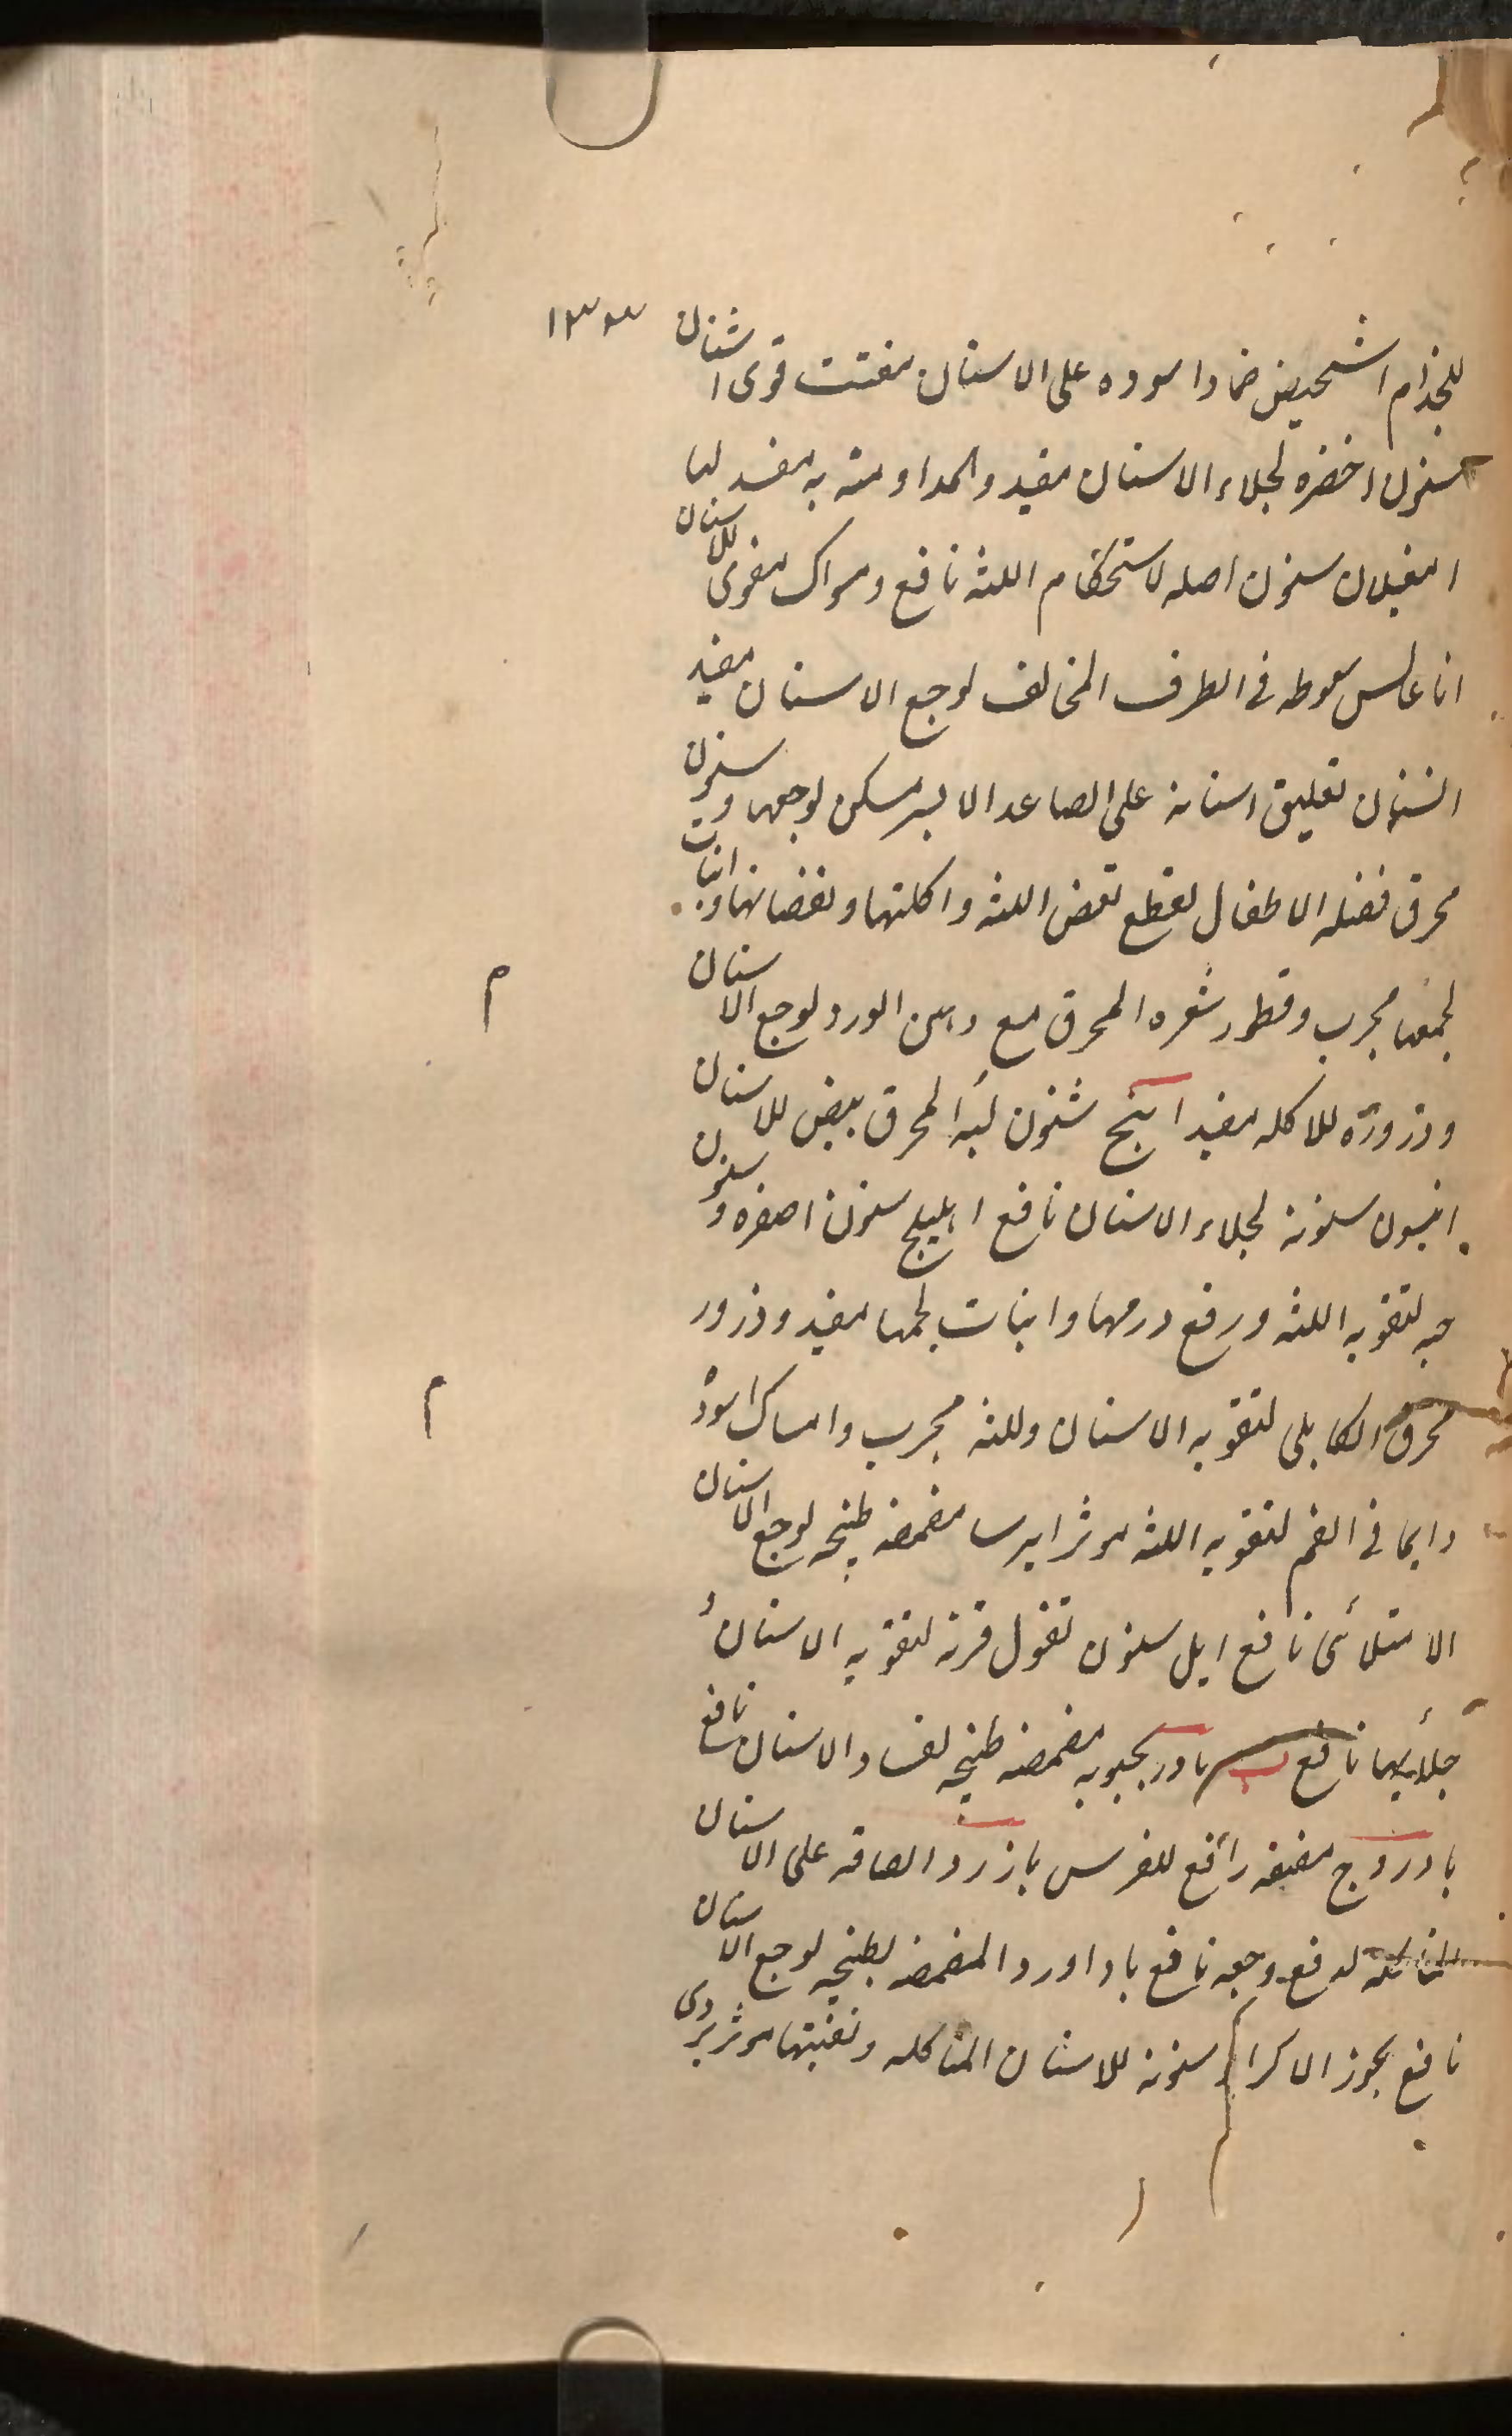 ١٣٣
للجذام اشخيص ضمادا سوده على الاسنان مفتت قوى اشنان
سنون اخضره لجلاء الاسنان مفيد والمداومته به مفسد لها
امغيلان سنون اصله لاستحكام اللثه نافع ومسواك مقوى للاسنان
اناغالس سعوطه فى الطرف المخالف لوجع الاسنان مفيد
انسان تعليق اسنانه على الصاعد الايسر مسكن لوجعها وسنون
محرق فضله الاطفال لقطع تعفن اللثه واكلتها ونقصانها وانبات
لحمها مجرب وقطور شعره المحرق مع دهن الورد لوجع الاسنان
وذروره للاكله مفيد اُبنج سنون لبه المحرق مبيض للاسنان
انيسون سنونه لجلاء الاسنان نافع اهليلج سنون اصفره وسنون
حبه لتقويه اللثه ورفع ورمها وانبات لحمها مفيد وذرور
محرق الكابلى لتقويه الاسنان وللثه مجرب وامساك اسوده
م
م
دايما فى الفم لتقويه اللثه موثر ايرسا مضمضه طبخه لوجع الاسنان
الامتلائى نافع ايل سنون تفول قرنه لتقويه الاسنان و
جلائها نافع ب بادرنجبويه مضمضه طبخه لفساد الاسنان نافع
بادروج مضغه رافع للضرس بازرد الصاقه على الاسنان
المتاكله لدفع وجعه نافع باداورد المضمضه بطبخه لوجع الاسنان
نافع بجوز الاكراد سنونه للاسنان المتاكله ونقيتها موثر بردى